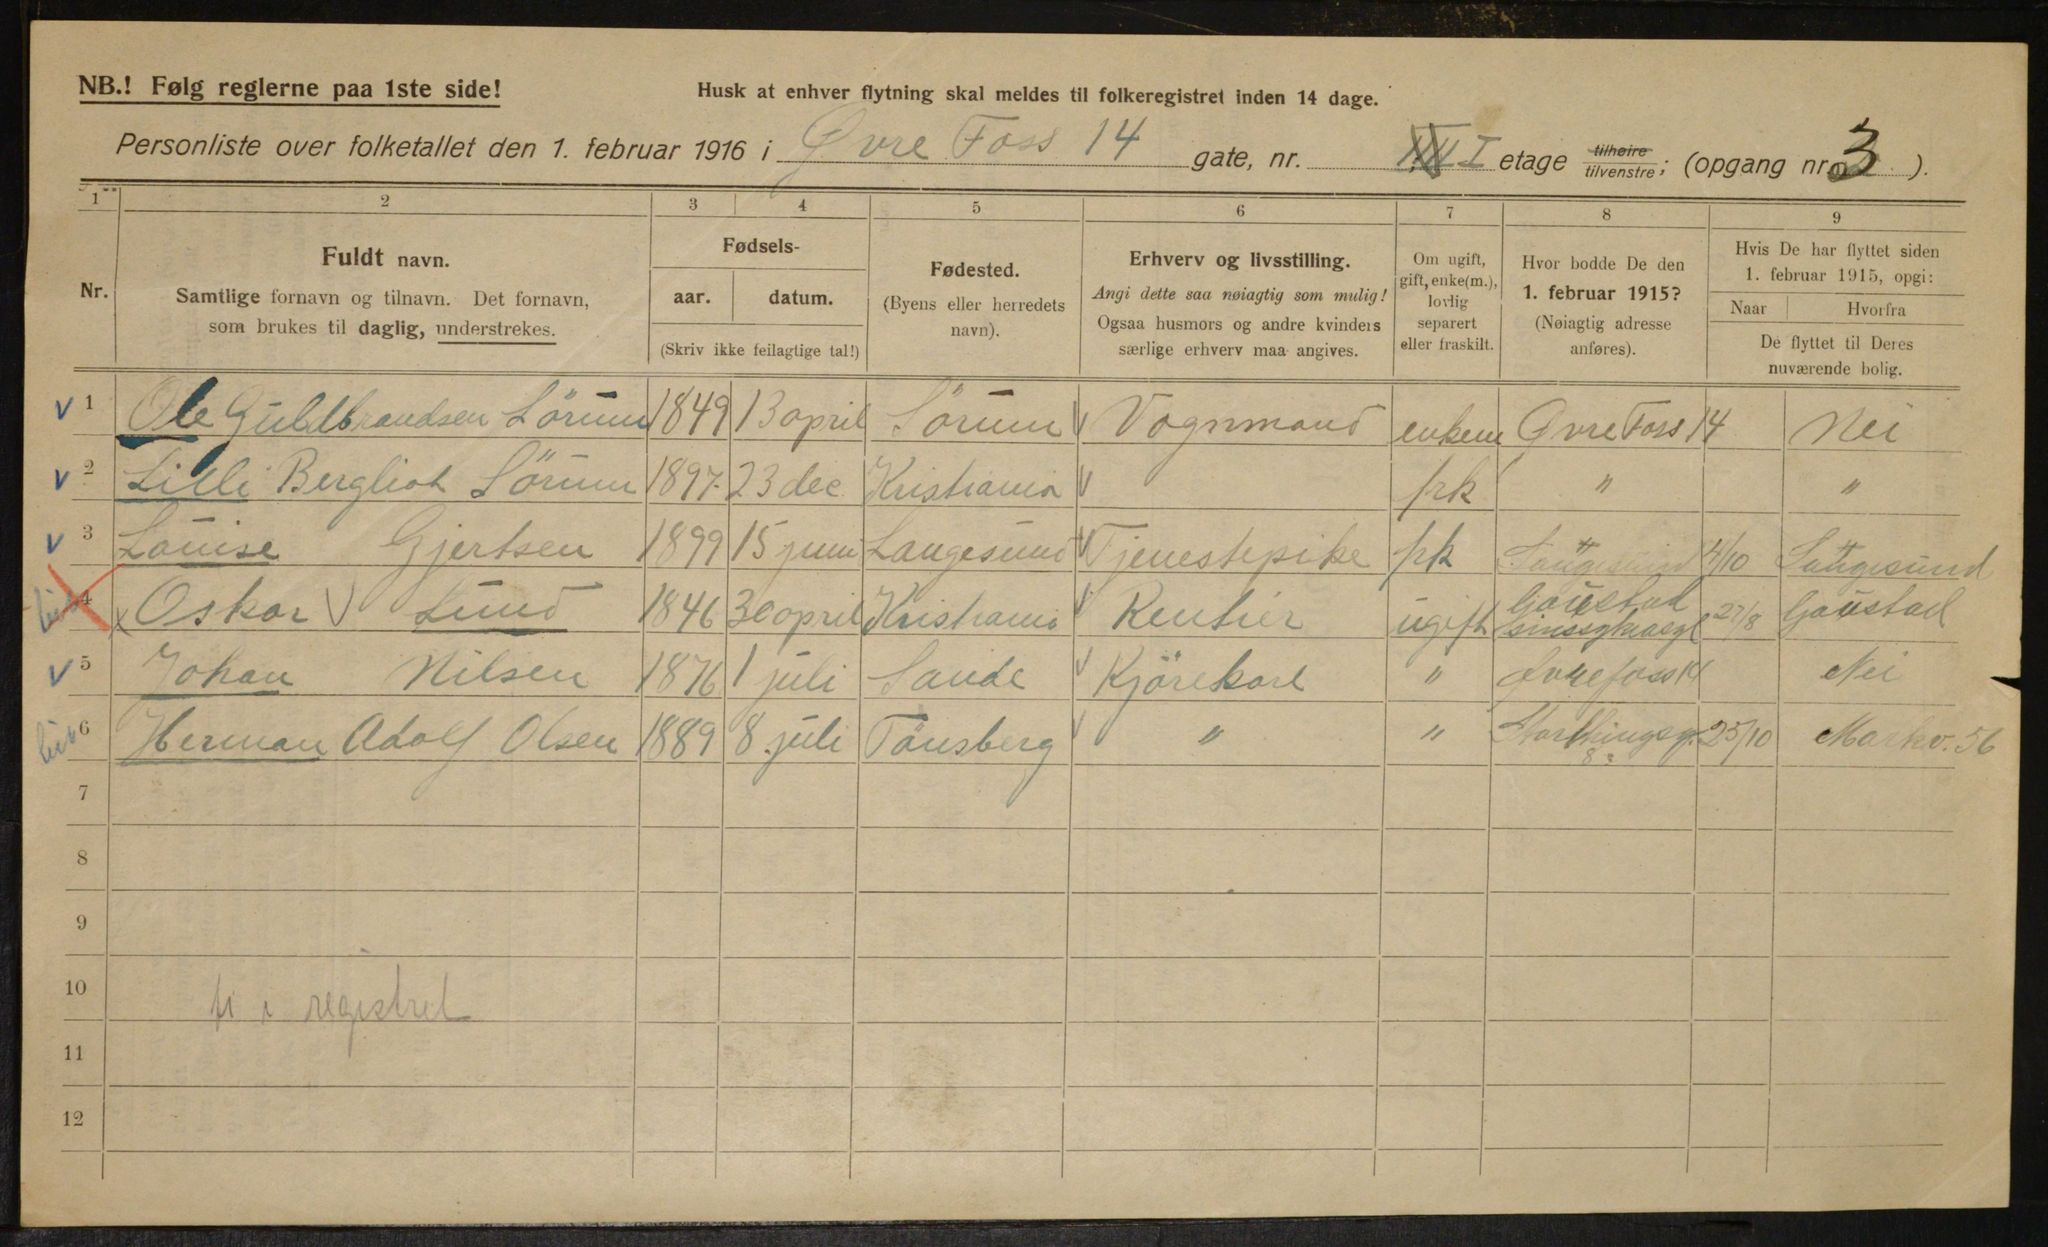 NB.! Følg reglerne paa 1ste side!
Husk at enhver flytning skal meldes til folkeregistret inden 14 dage.
Personliste over folketallet den 1. februar 1916 i Øvre Foss 14 gate, nr. I etage tilhøire tilvenstre; (opgang nr. 3).
1 2 3 4 5 6 7 8 9
Nr.
Fuldt navn.
Samtlige fornavn og tilnavn. Det fornavn,
som brukes til daglig, understrekes.
Fødsels-
aar. datum.
(Skriv ikke feilagtige tal!)
Fødested.
(Byens eller herredets
navn).
Erhverv og livsstilling.
Angi dette saa nøiagtig som mulig!
Ogsaa husmors og andre kvinders
særlige erhverv maa angives.
Om ugift,
gift, enke(m.),
lovlig
separert
eller fraskilt.
Hvor bodde De den
1. februar 1915?
(Nøiagtig adresse
anføres).
Hvis De har flyttet siden
1. februar 1915, opgi:
Naar Hvorfra
De flyttet til Deres
nuværende bolig.
1 Ole Guldbrandsen Lörum 1849 13 april Sörum Vognmand enkem Øvre Foss 14 Nei
2 Lilli Bergliot Sörum 1897 23 dec Kristiania prk " "
3 Louise Gjertsen 1899 15 juni Langesund Tjenestepike prk Langesund 14/10 Langesund
4 Oskar Lund 1846 30 april Kristiania Rentier ugift Gaustad sinssykeasyl 27/8 Gaustad
5 Johan Nilsen 1876 1 juli Sande Kjörekarl " Øvrefoss 14 Nei
6 Herman Adolf Olsen 1889 8. juli Tönsberg " " Storthingsg. 8 25/10 Markv. 56
7
8
9
10
i registret
11
12